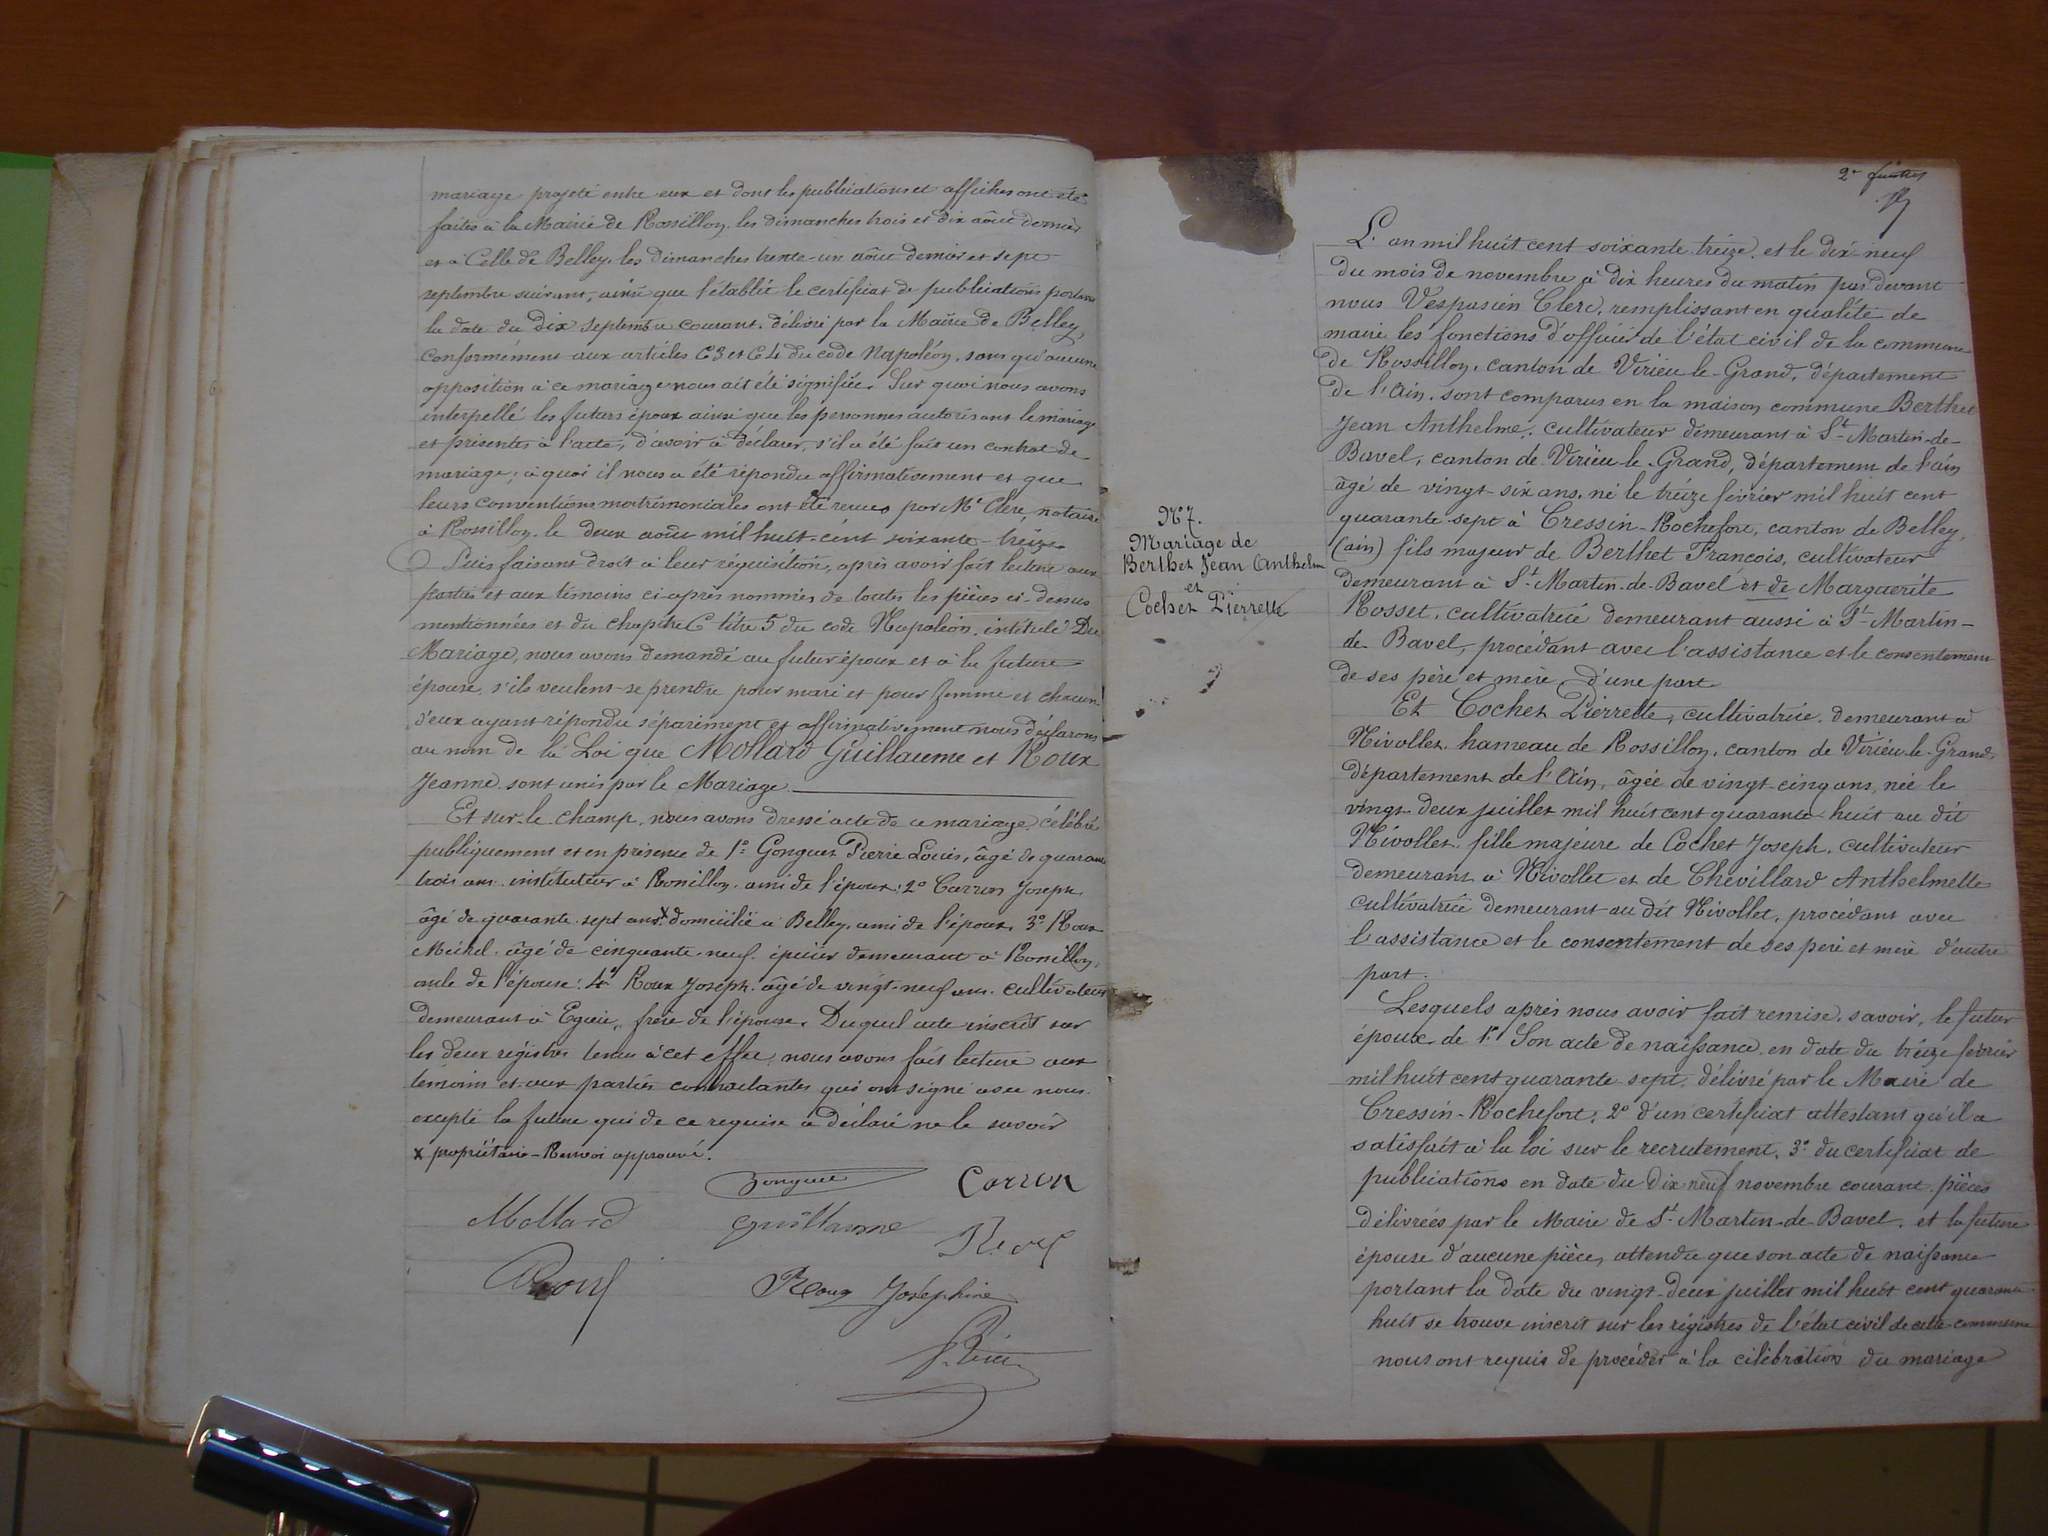 mariage projeté entre eux et dont les publications et affiches ont été
faites à la Mairie de Rossillon, les dimanches trois et dix août dernier
et à Celle de Belley, les dimanches trente-un août dernier et sept
septembre suivant, ainsi que l'établit le certificat de publications portant
la date du Dix septembre courant, délivré par la Mairie de Belley,
conformément aux articles 63 et 64 du code Napoléon, sans qu'aucune
opposition à ce mariage nous ait été signifiée. Sur quoi nous avons
interpellé les futurs époux ainsi que les personnes autorisant le mariage
et présentes à l'acte, d'avoir à déclarer, s'il a été fait un contrat de
mariage; à quoi il nous a été répondu affirmativement et que
leurs conventions matrimoniales ont été reçues par Me Clerc, notaire
à Rossillon, le deux août mil huit-cent soixante-treize
Puis faisant droit à leur réquisition, après avoir fait lecture aux
parties et aux témoins ci-après nommés de toutes les pièces ci-dessus
mentionnées et du chapitre 6 titre 5 du code Napoléon, intitulé Du
Mariage, nous avons demandé au futur époux et à la future
épouse, s'ils veulent se prendre pour mari et pour femme et chacun
d'eux ayant répondu séparément et affirmativement nous déclarons
au nom de la Loi que Mollard Guillaume et Roux
Jeanne sont unis par le Mariage
Et sur-le-champ, nous avons dressé acte de ce mariage, célébré
publiquement et en présence de 1° Gonguet Pierre Louis, âgé de quarante
trois ans, instituteur à Rossillon, ami de l'époux; 2° Carron Joseph
âgé de quarante-sept ans x domicilié à Belley, ami de l'époux, 3° Roux
Michel, âgé de cinquante-neuf, épicier demeurant à Rossillon,
oncle de l'épouse; 4° Roux Joseph, âgé de vingt-neuf ans, cultivateur
demeurant à Egieu, frère de l'épouse. Duquel acte inscrit sur
les deux régistres tenus à cet effet, nous avons fait lecture aux
témoins et aux parties contractantes qui ont signé avec nous
excepté la future qui de ce requise a déclaré ne le savoir
x propriétaire - Renvoi approuvé.
Gonguet Carron
Mollard Guillaume Roux
Roux Josephine
N° 7.
Mariage de
Berthet Jean Anthelme
et
Cochet Pierrette
L'an mil huit cent soixante treize, et le dix-neuf
du mois de novembre à dix heures du matin par devant
nous Vespasien Clerc, remplissant en qualité de
maire les fonctions d'officier de l'état civil de la commune
de Rossillon, canton de Virieu-le-Grand, département
de l'Ain, sont comparus en la maison commune Berthet
Jean Anthelme, cultivateur demeurant à St-Martin-de-
Bavel, canton de Virieu-le-Grand, département de l'ain
âgé de vingt-six ans, né le treize février mil huit cent
quarante-sept à Cressin-Rochefort, canton de Belley,
(ain) fils majeur de Berthet François, cultivateur
demeurant à St-Martin-de-Bavel et de Marguerite
Rosset, cultivatrice demeurant aussi à St-Martin-
de-Bavel, procédant avec l'assistance et le consentement
de ses père et mère, d'une part
Et Cochet Pierrette, cultivatrice, demeurant à
Nivollet, hameau de Rossillon, canton de Virieu-le-Grand,
département de l'Ain, âgée de vingt-cinq ans, née le
vingt-deux juillet mil huit cent quarante-huit au dit
Nivollet, fille majeure de Cochet Joseph, cultivateur
demeurant à Nivollet et de Chevillard Anthelmette
cultivatrice demeurant au dit Nivollet, procédant avec
l'assistance et le consentement de ses père et mère d'autre
part.
Lesquels après nous avoir fait remise, savoir, le futur
époux de 1° Son acte de naissance en date du treize février
mil huit cent quarante-sept, délivré par le Maire de
Cressin-Rochefort; 2° d'un certificat attestant qu'il a
satisfait à la loi sur le recrutement, 3° du certificat de
publications en date du dix neuf novembre courant, pièces
délivrées par le Maire de St-Martin-de-Bavel, et la future
épouse d'aucune pièce, attendu que son acte de naissance
portant la date du vingt-deux juillet mil huit cent quarante
huit se trouve inscrit sur les régistres de l'état civil de cette commune
nous ont requis de procéder à la célébration du mariage